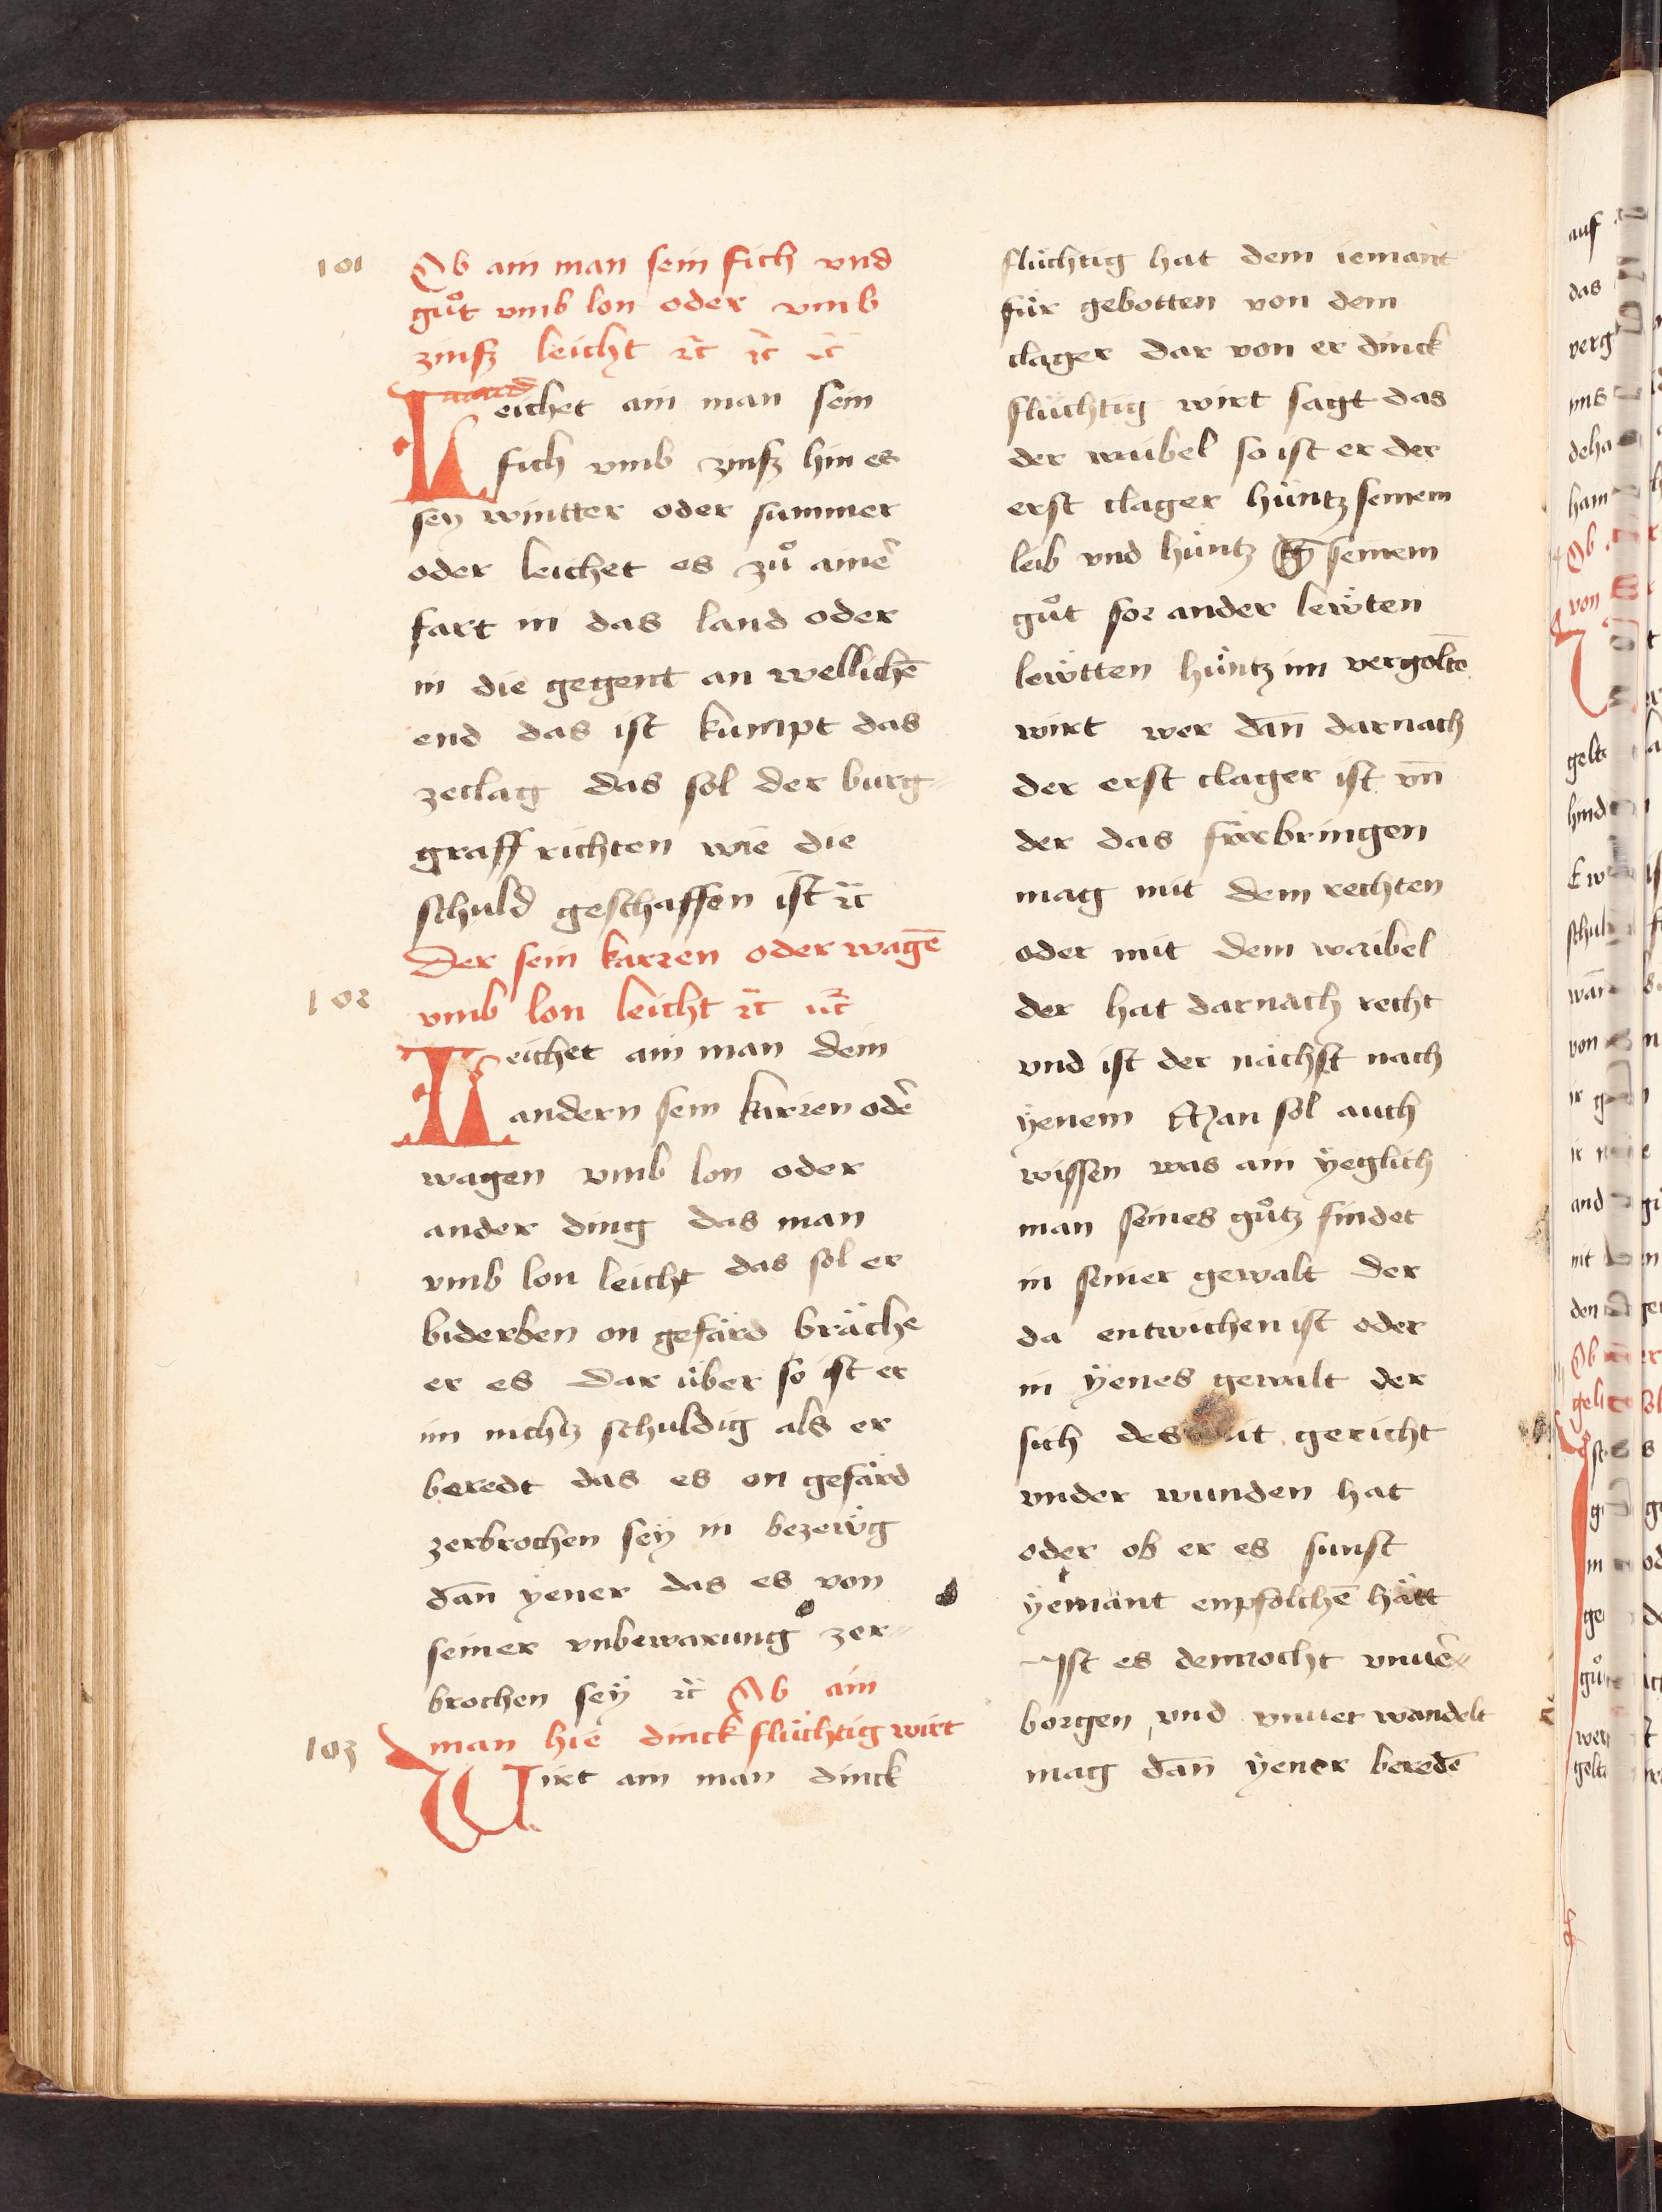 101
Ob ain man sein fich vnd
gůt vmb lon oder vmb
zinsz leicht ꝛc̄ ꝛc̄ ꝛc̄
Leichet ain man sein
fich vmb zinsz hin es
sey wintter oder summer
oder leichet es zů aine͂
fart in das land oder
in die gegent an wellichē
end das ist kumpt das
zeclag das sol der burg=
graff richten wie die
schuld geschaffen ist ꝛc̄
Der sein karren oder wagē
102
vmb lon leicht ꝛc̄ ꝛc̄
Leichet ain man dem
andern sein karren ode͂
wagen vmb lon oder
ander ding das man
vmb lon leicht das sol er
biderben on gefärd bräche
er es dar über so ist er
im nichtz schuldig als er
beredt das es on gefärd
zerbrochen seÿ in bezewg
dan̄ ÿener das es von
seiner vnbewarung zer=
brochen seÿ ꝛc̄ Ob ain
man hie dinck flüchtig wirt
103
Wirt ain man dinck
flüchtig hat dem iemant
für gebotten von dem
clager dar von er dinck
flüchtig wirt sagt das
der waibel so ist er der
erst clager hüntz seinem
leib vnd hüntz seinem
gůt for ander lewten
lewtten hüntz im vergoltē
wirt wer dan̄ darnach
der erst clager ist vn̄
der das fürbringen
mag mit dem rechten
oder mit dem waibel
der hat darnach recht
vnd ist der nächst nach
ÿenem Man sol auch
wissen was ain ÿeglich
man seines gůtz findet
in seiner gewalt der
da entwichen ist oder
in ÿenes gewalt der
sich des mit gericht
vnder wunden hat
oder ob er es sunst
ÿemant enpfolchē hätt
Ist es dennocht vnue͂=
borgen vnd vnuer wandelt
mag dan̄ ÿener beredē